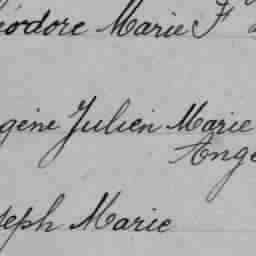 éodore Marie F
gène Julien Marie
Ange
seph Marie